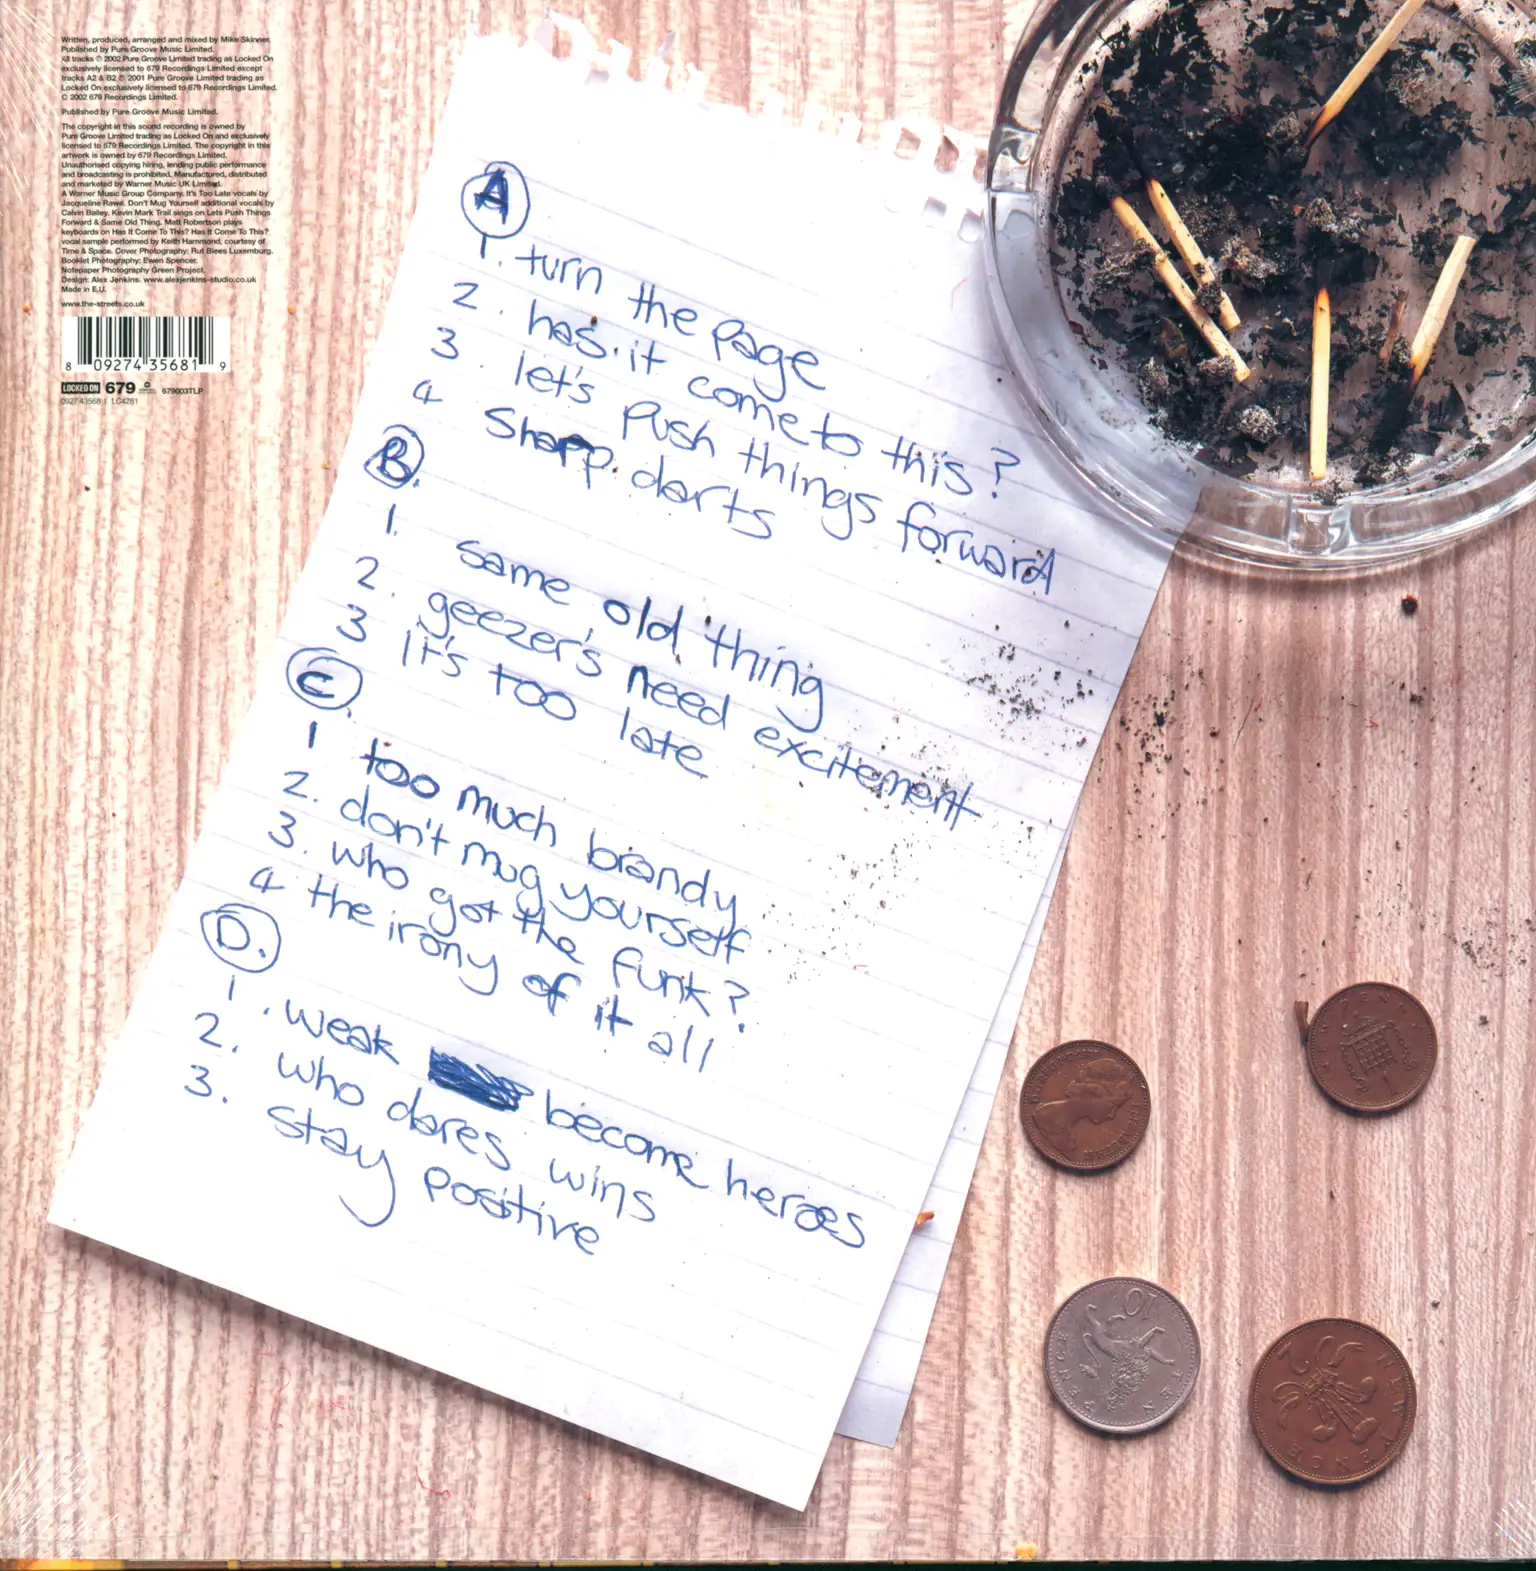 Written, produced, arranged and mixed by Mike Skinner.
Published by Pure Groove Music Limited.
All tracks ℗ 2002 Pure Groove Limited trading as Locked On
exclusively licensed to 679 Recordings Limited except
tracks A2 & B2 ℗ 2001 Pure Groove Limited trading as
Locked On exclusively licensed to 679 Recordings Limited.
© 2002 679 Recordings Limited.
Published by Pure Groove Music Limited.
The copyright in this sound recording is owned by
Pure Groove Limited trading as Locked On and exclusively
licensed to 679 Recordings Limited. The copyright in this
artwork is owned by 679 Recordings Limited.
Unauthorised copying hiring, lending public performance
and broadcasting is prohibited. Manufactured, distributed
and marketed by Warner Music UK Limited.
A Warner Music Group Company. It's Too Late vocals by
Jacqueline Rawe. Don't Mug Yourself additional vocals by
Calvin Bailey. Kevin Mark Trail sings on Lets Push Things
Forward & Same Old Thing. Matt Robertson plays
keyboards on Has It Come To This? Has It Come To This?
vocal sample performed by Keith Hammond, courtesy of
Time & Space. Cover Photography: Rut Blees Luxemburg.
Booklet Photography: Ewen Spencer.
Notepaper Photography Green Project.
Design: Alex Jenkins. www.alexjenkins-studio.co.uk
Made in E.U.
www.the-streets.co.uk
8 09274 35681 9
LOCKED ON 679 679003TLP
0927 43568 1 LC4281
A
1. turn the page
2. has it come to this?
3. let's push things forward
4 Sharp darts
B.
1. same old thing
2. geezer's need excitement
3 It's too late
C.
1 too much brandy
2. don't mug yourself
3. who got the funk?
4 the irony of it all
D.
1. weak become heroes
2. who dares wins
3. stay positive
ONE PENNY
TEN PENCE
10
NEW PENCE
2